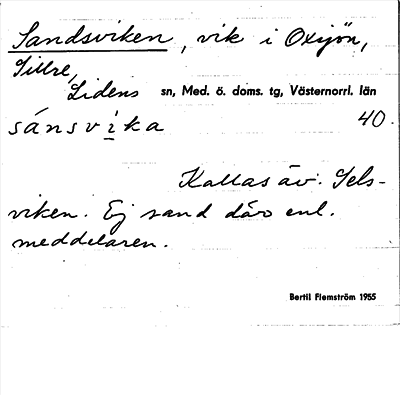 Sandsviken, vik i Oxsjön,
Sillre,
Lidens sn, Med. ö. doms. tg, Västernorrl. län
sánsvi̲ka 40.
Kallas äv. Sels-
viken. Ej sand där enl.
meddelaren.
Bertil Flemström 1955